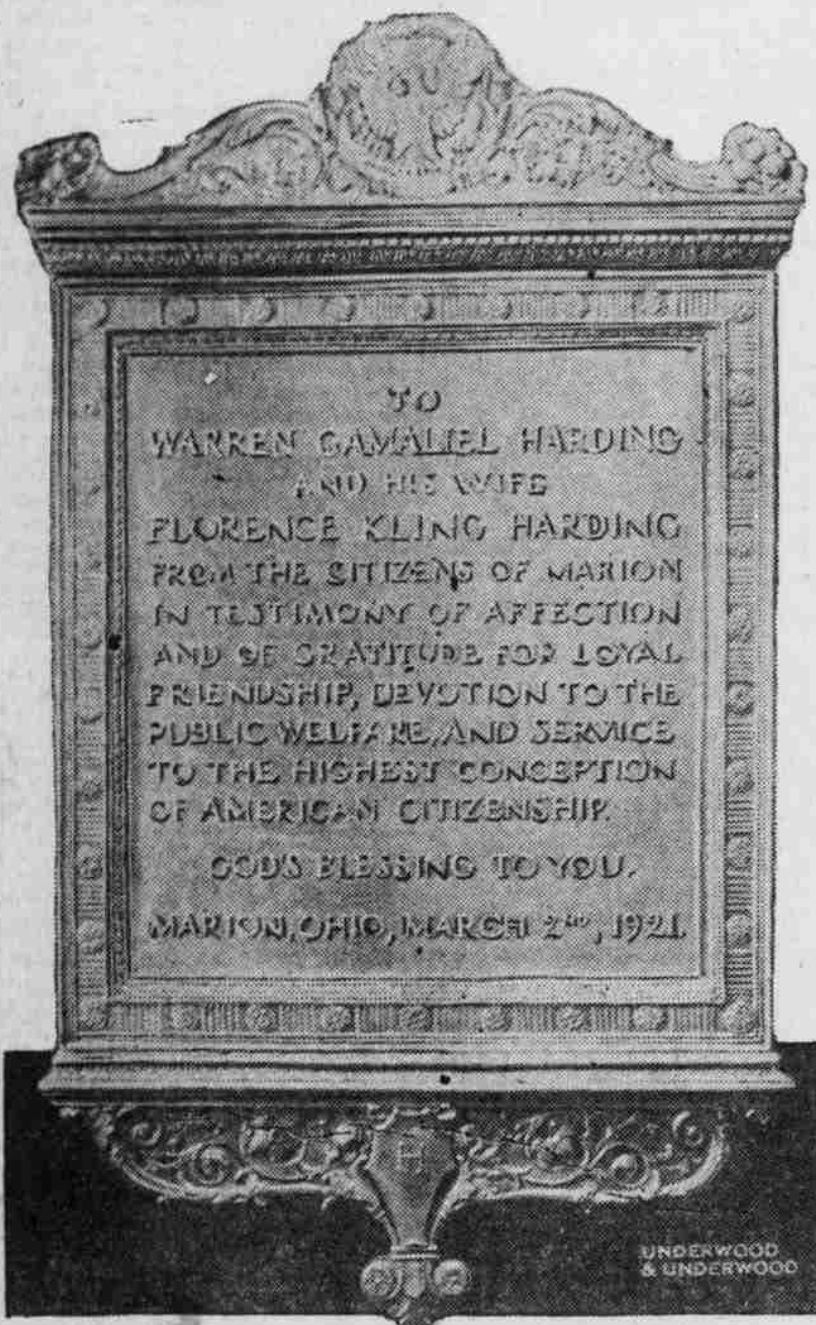 TO
WARREN GAMALIEL HARDING
AND HIS WIFE
FLORENCE KLING HARDING
FROM THE CITIZENS OF MARION
IN TESTIMONY OF AFFECTION
AND OF GRATITUDE FOR LOYAL
FRIENDSHIP, DEVOTION TO THE
PUBLIC WELFARE, AND SERVICE
TO THE HIGHEST CONCEPTION
OF AMERICAN CITIZENSHIP.
GOD'S BLESSING TO YOU.
MARION, OHIO, MARCH 2ND, 1921.
H
UNDERWOOD
& UNDERWOOD